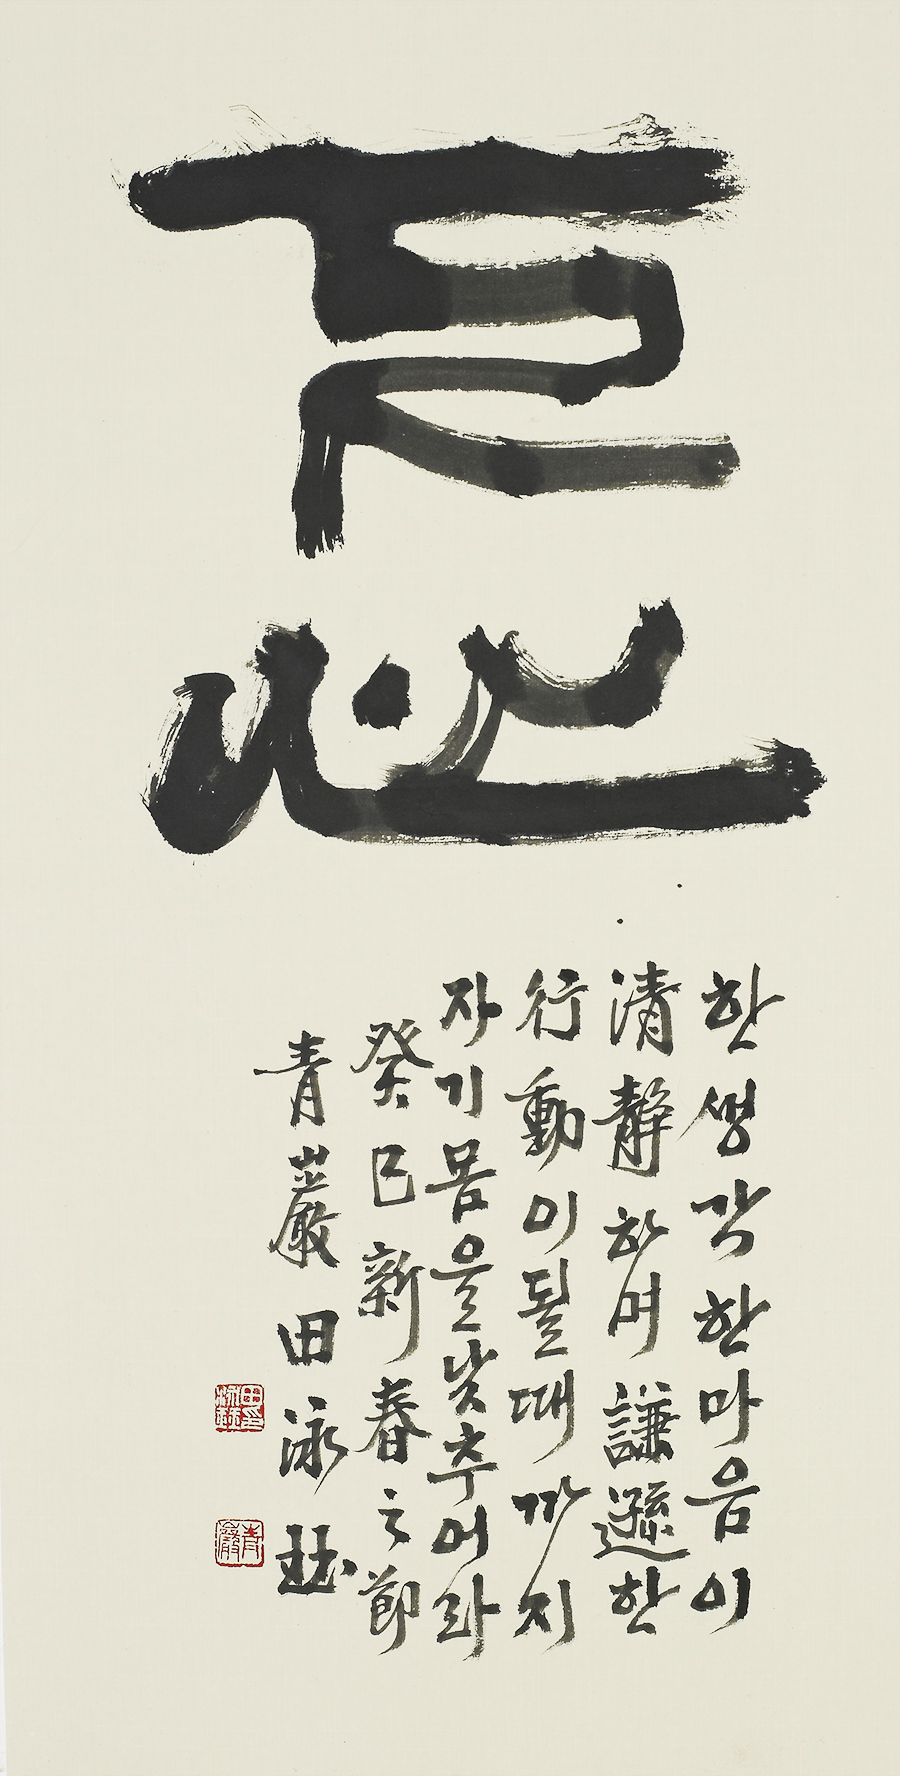 下心
한생각한마음이
清静하며謙遜한
行動이될때까지
자기몸을낮추어라
癸巳新春之節
青巖田泳
青巖